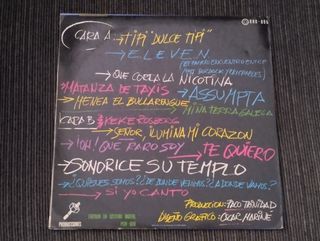 CARA A → TIPI "DULCE TIPI"
→ ELEVEN
→ QUE COLEA LA NICOTINA
→ MATANZA DE TAXIS → ASSUMPTA
→ MENEA EL BULLARENGUE → MI NA TERRA GALEGA
CARA B → KEKE ROSBERG
→ SEÑOR, ILUMINA MI CORAZON
→ !OH! QUE RARO SOY → TE QUIERO
→ SONORICE SU TEMPLO
→ ¿QUIENES SOMOS? ¿DE DONDE VENIMOS? ¿A DONDE VAMOS?
→ SI YO CANTO
PRODUCCION: PACO TRINIDAD
DISEÑO GRAFICO: OSCAR MARINÉ
PRODUCCIONES